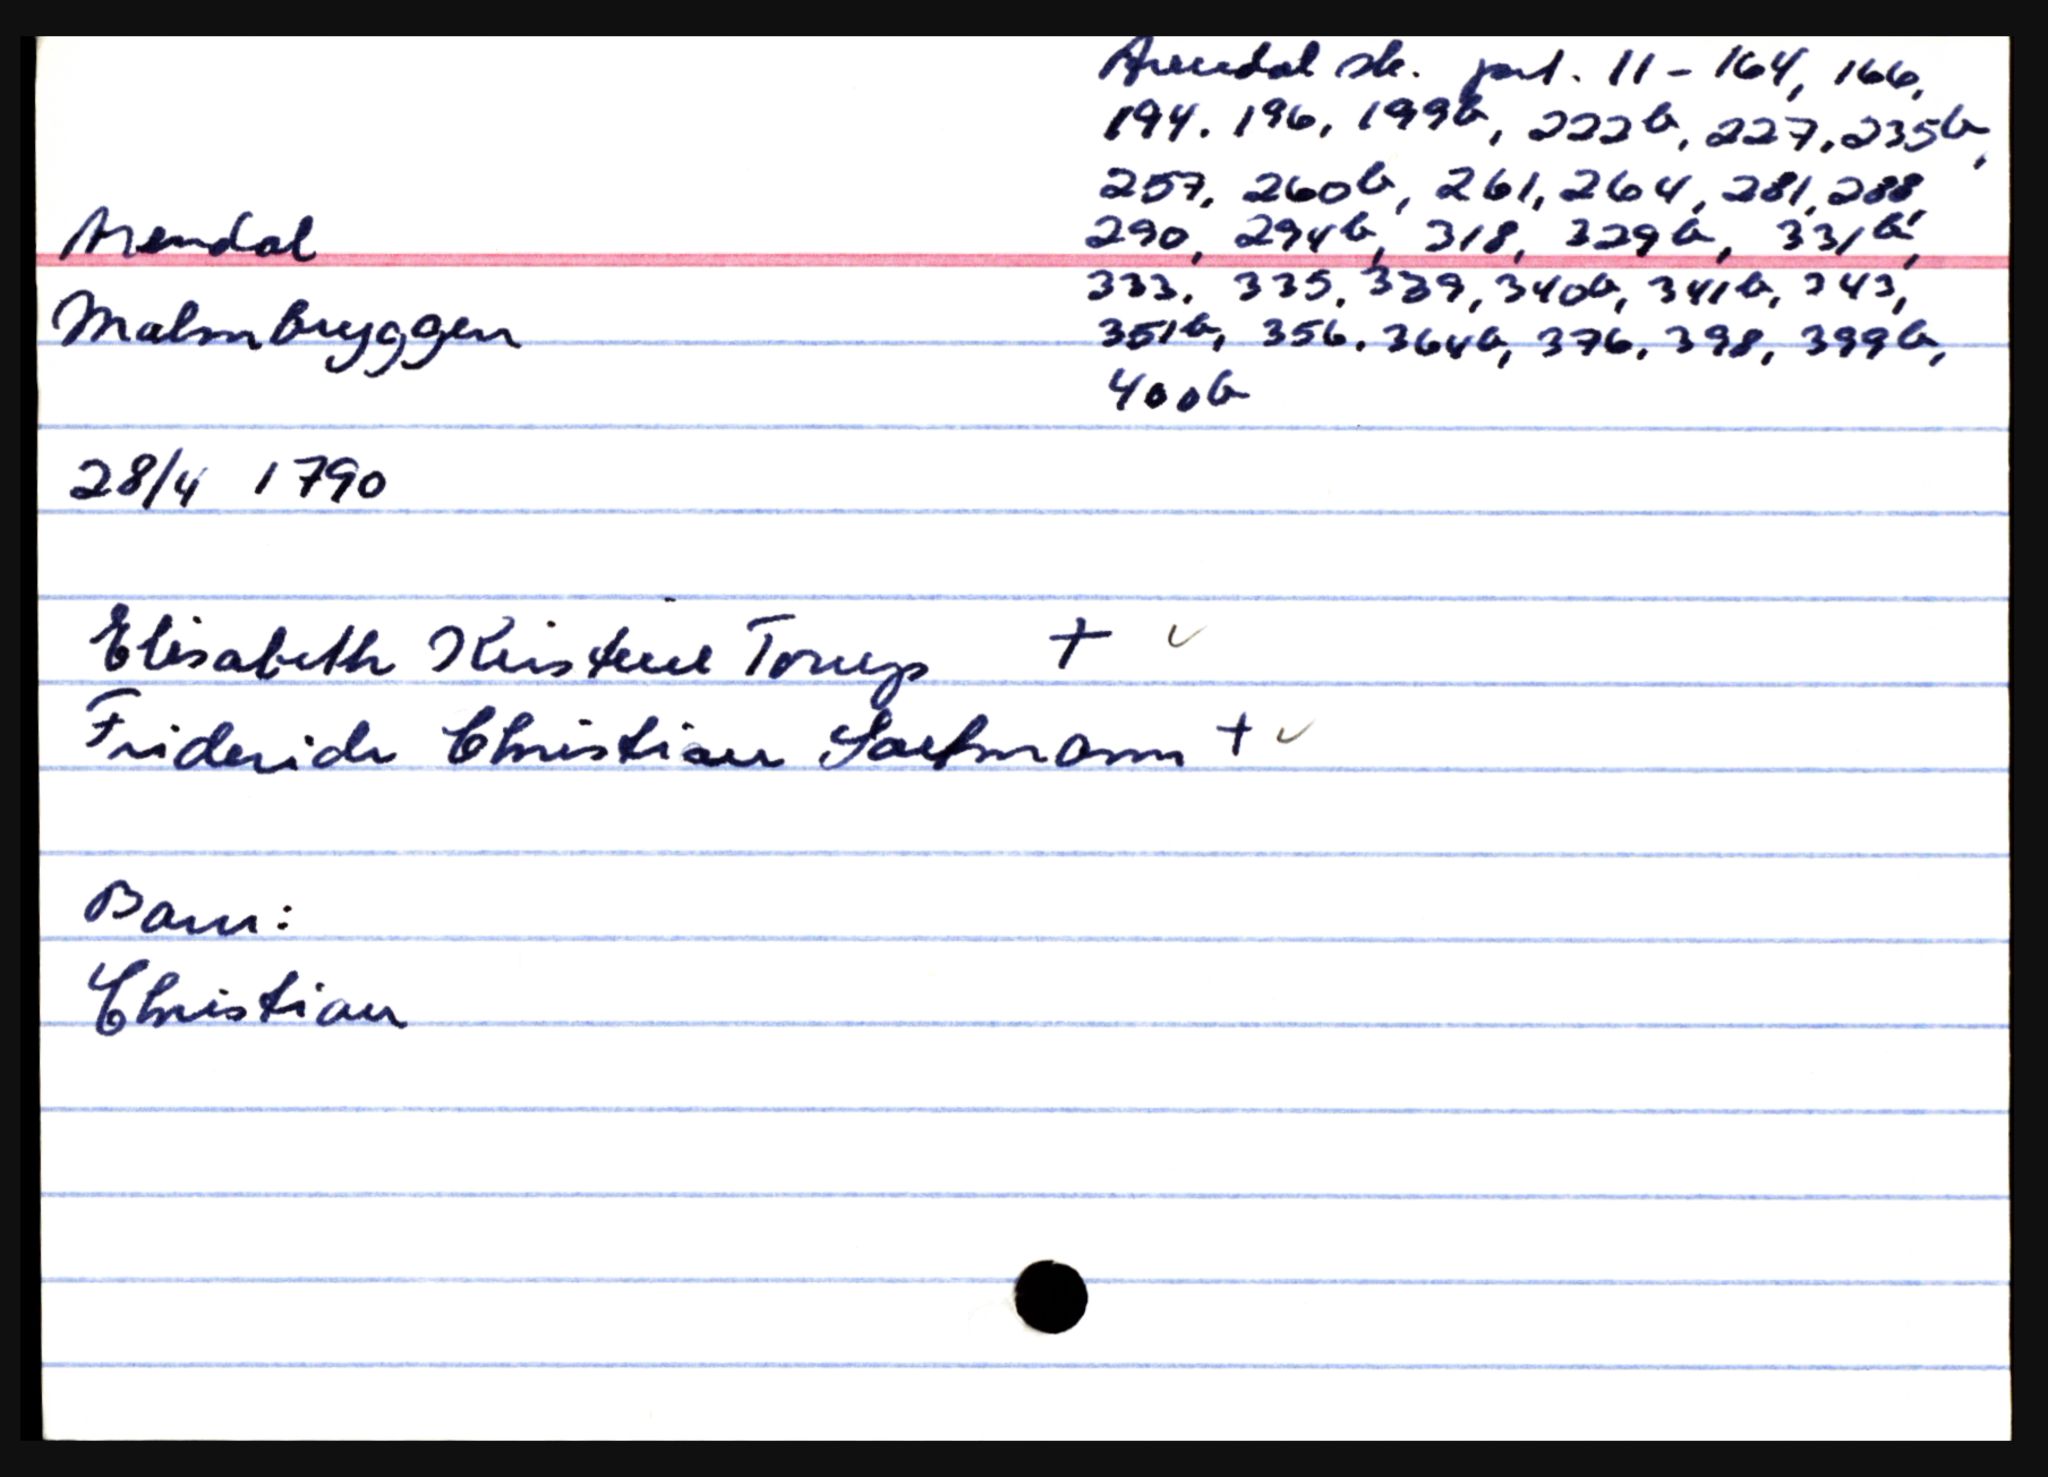 Arendal sk. prot. 11 - 164, 166,
194. 196, 199b, 222b, 227, 235b,
257, 260b, 261, 264, 281, 288,
290, 294b, 318, 329b, 331b,
333, 335, 339, 340b, 341b, 343,
351b, 356, 364b, 376, 398, 399b,
400b
Arendal
Malmbryggen
28/4 1790
Elisabeth Kristine Torup + ✓
Friderich Christian + ✓
Barn:
Christian